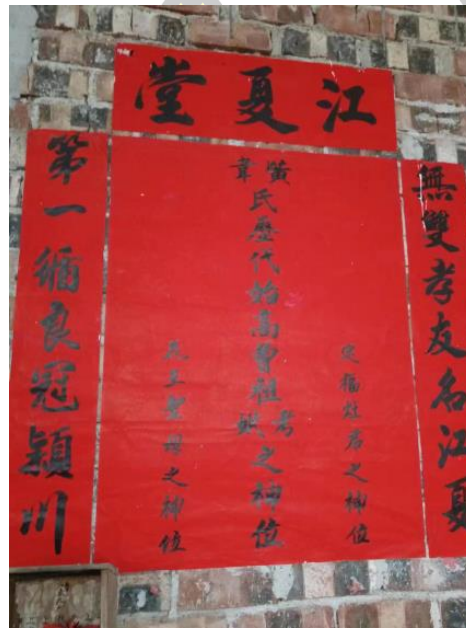 江夏堂
無雙孝友名江夏
定福灶君之神位
黃韋氏歷代始高曾祖考妣之神位
花王聖母之神位
第一循良冠潁川